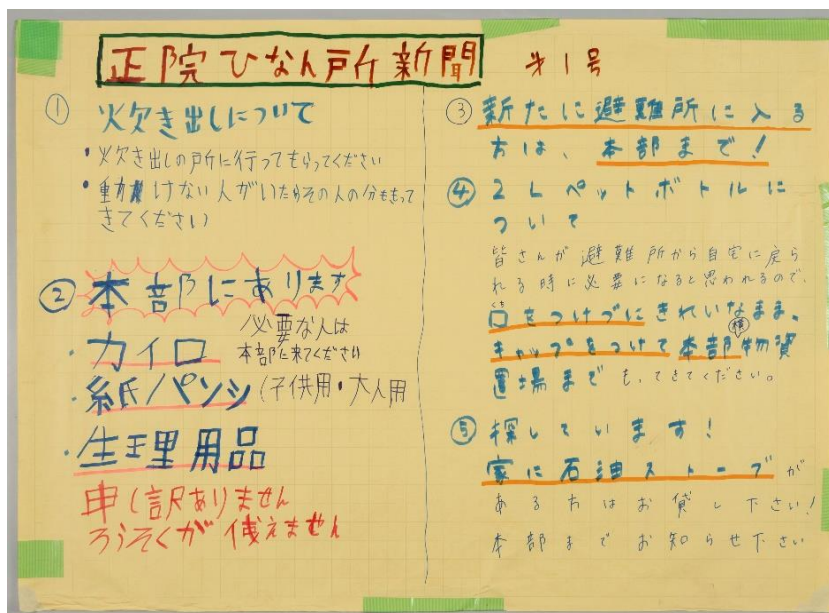 正院ひなん所新聞 才1号
① 火欠き出しについて
・火欠き出しの所に行ってもらってください
・動けない人がいたらその人の分ももって
きてください
② 本部にあります
必要な人は
本部に来てください
・カイロ
・紙パンツ(子供用・大人用
・生理用品
申し訳ありません
ろうそくが使えません
③ 新たに避難所に入る
方は、本部まで!
④ 2Lペットボトルに
ついて
皆さんが避難所から自宅に戻ら
れる時に必要になると思われるので、
口をつけづにきれいなまま、
キャップをつけて本部横物資
置場までもってきてください。
⑤ 探しています!
家に石油ストーブが
ある方はお貸し下さい!
本部までお知らせ下さい